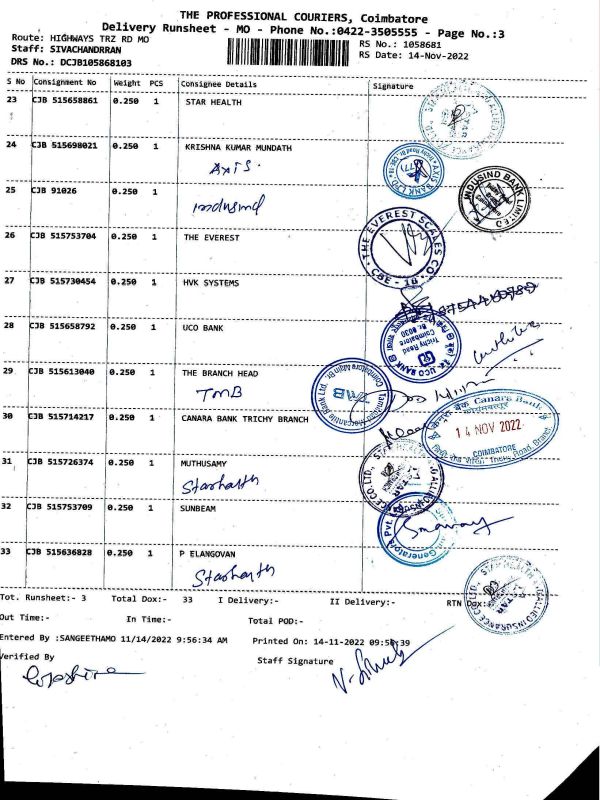 THE PROFESSIONAL COURIERS, Coimbatore
Delivery Runsheet - MO - Phone No.:0422-3505555 - Page No.:3
Route: HIGHWAYS TRZ RD MO
RS No.: 1058681
Staff: SIVACHANDRRAN
RS Date: 14-Nov-2022
DRS No.: DCJB105868103
S No Consignment No Weight PCS Consignee Details Signature
23 CJB 515658861 0.250 1 STAR HEALTH
24 CJB 515698021 0.250 1 KRISHNA KUMAR MUNDATH
AXIS.
AXIS BANK LTD
25 CJB 91026 0.250 1
Indusind
INDUSIND BANK LIMITED
26 CJB 515753704 0.250 1 THE EVEREST
THE EVEREST SCALES CO.
CBE - 18
27 CJB 515730454 0.250 1 HVK SYSTEMS
28 CJB 515658792 0.250 1 UCO BANK
Trichy Road
Coimbatore
UCO BANK
29 CJB 515613040 0.250 1 THE BRANCH HEAD
TMB
Tamilnad Mercantile Bank Ltd
TMB
30 CJB 515714217 0.250 1 CANARA BANK TRICHY BRANCH
केनरा बैंक Canara Bank
कोयम्बत्तूर
14 NOV 2022
COIMBATORE
31 CJB 515726374 0.250 1 MUTHUSAMY
Starhealth
32 CJB 515753709 0.250 1 SUNBEAM
33 CJB 515636828 0.250 1 P ELANGOVAN
Starhealth
STAR HEALTH & ALLIED INSURANCE CO LTD
Tot. Runsheet:- 3 Total Dox:- 33 I Delivery:- II Delivery:- RTN Dox:-
Out Time:- In Time:- Total POD:-
Entered By :SANGEETHAMO 11/14/2022 9:56:34 AM Printed On: 14-11-2022 09:56:39
Verified By Staff Signature